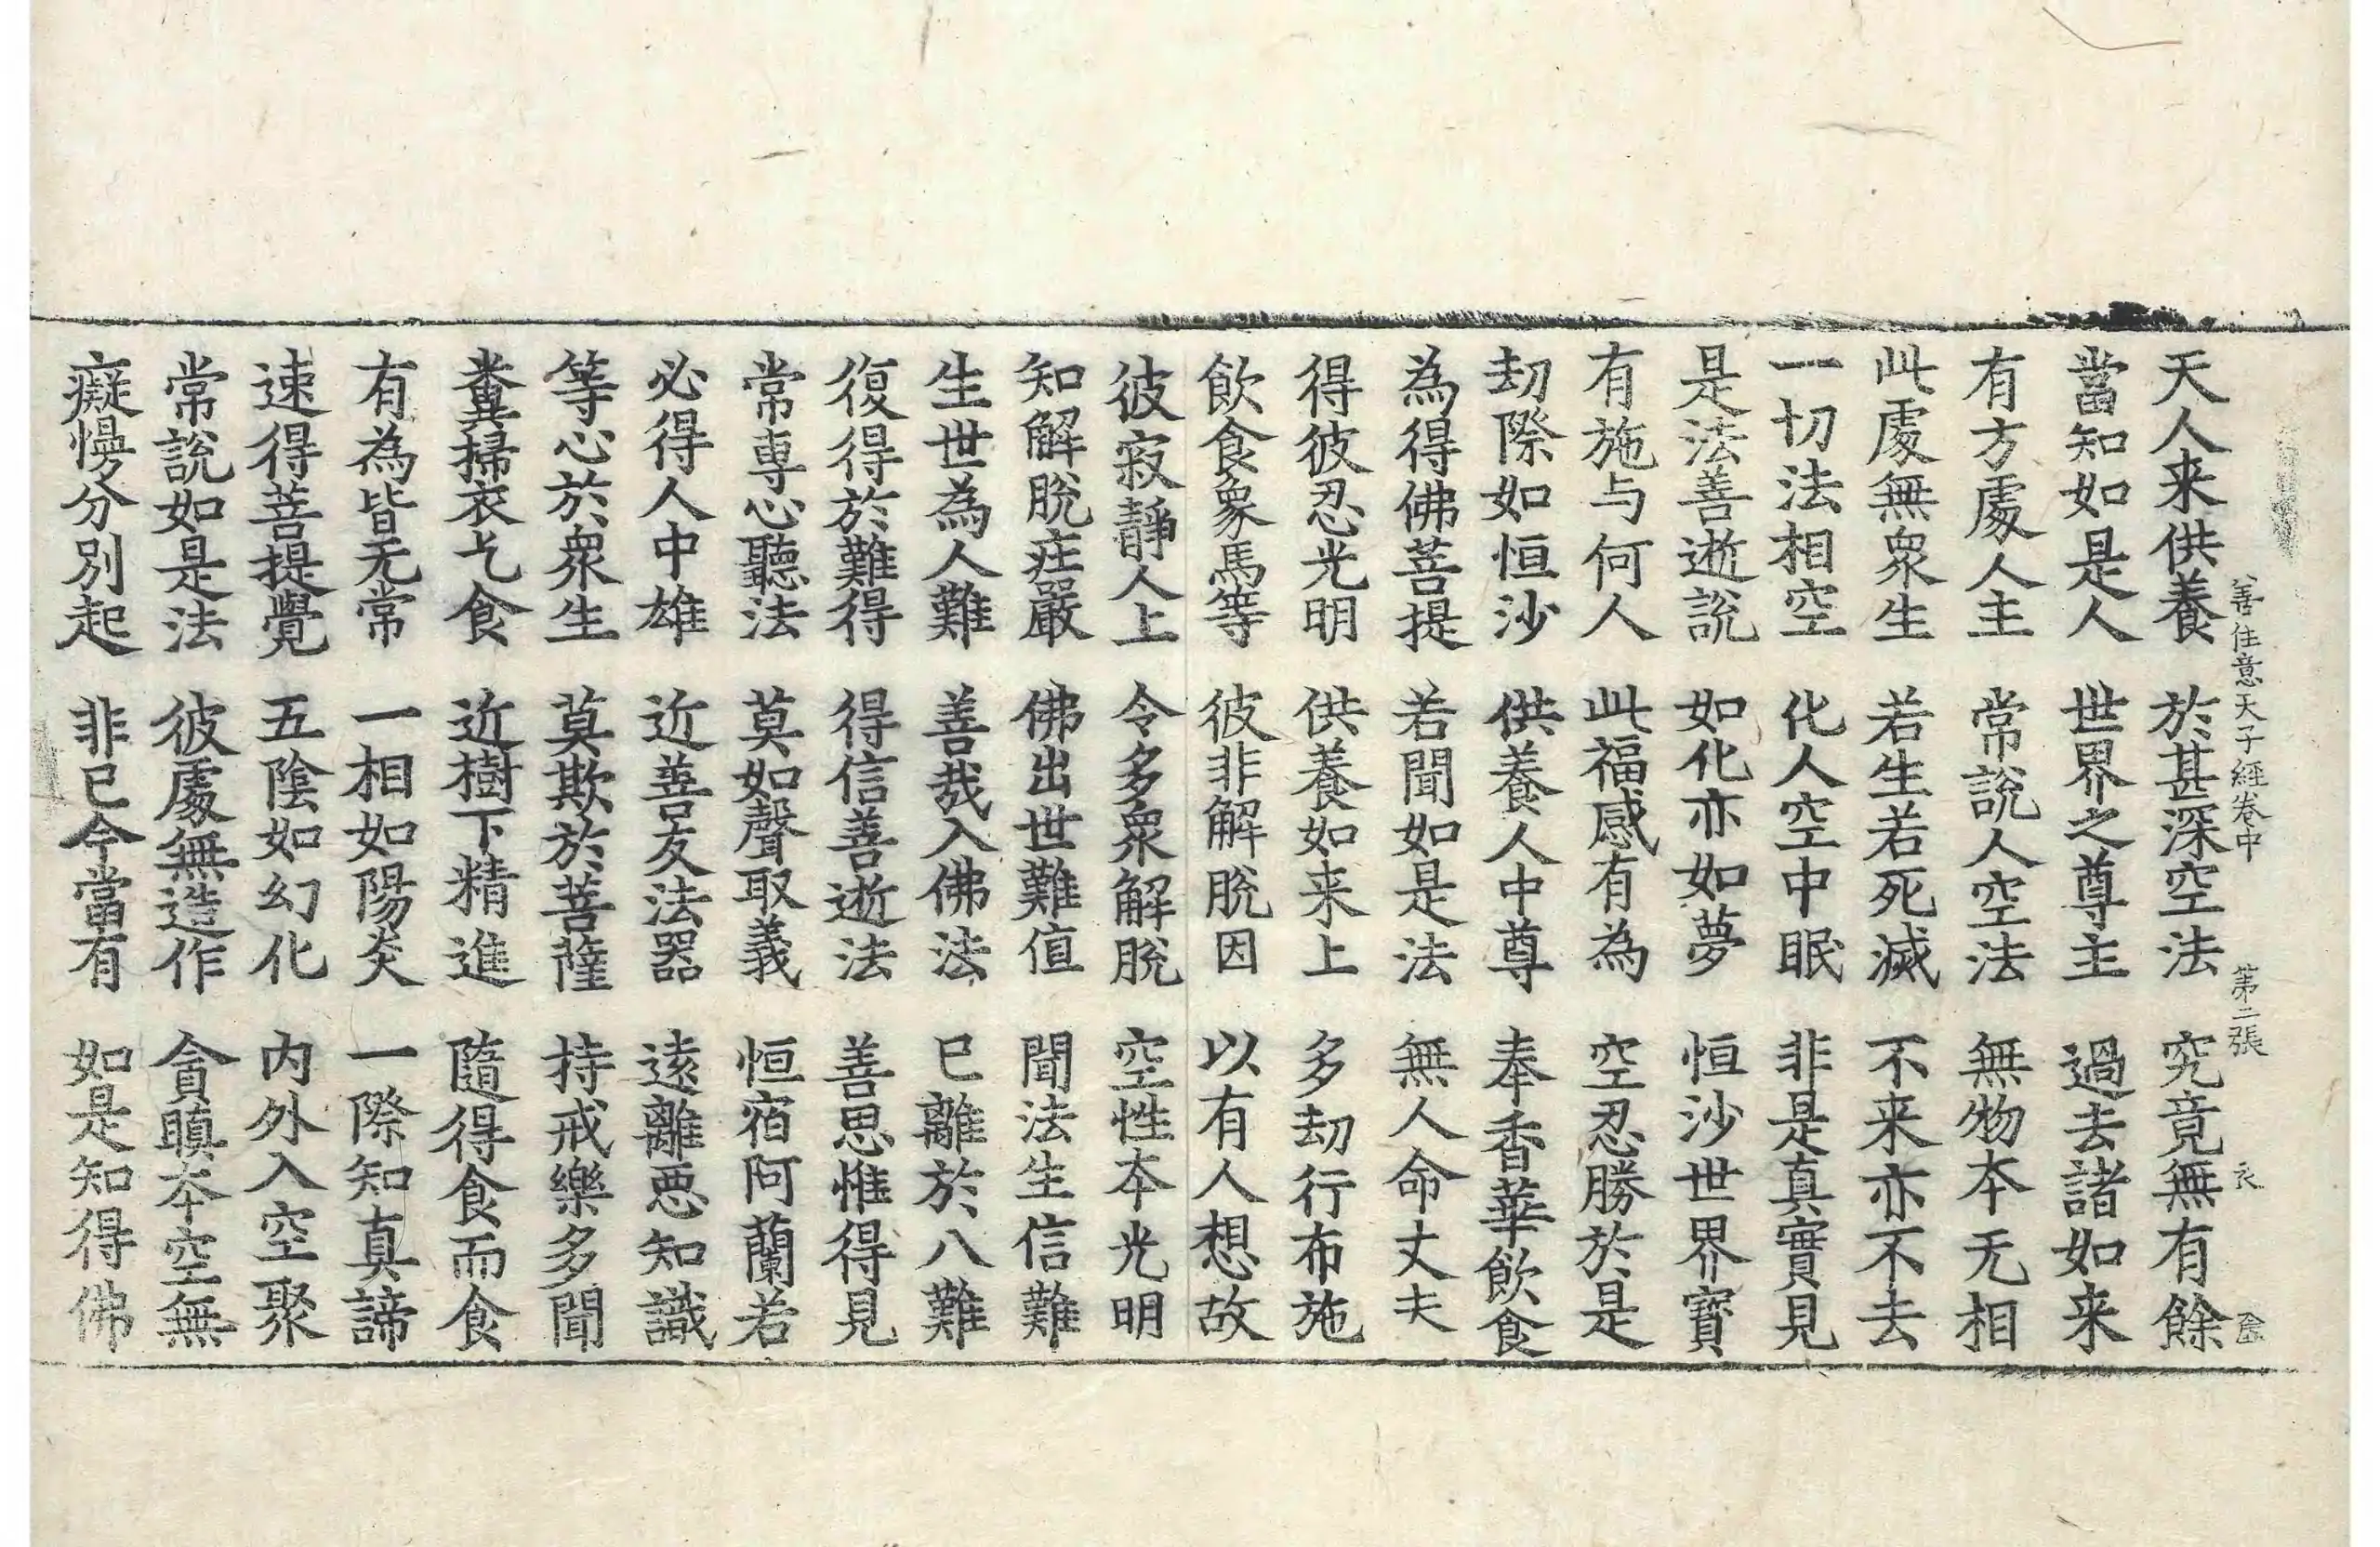 善住意天子經卷中 第二張 衣
天人来供養 於甚深空法 究竟無有餘
當知如是人 世界之尊主 過去諸如来
有方處人主 常說人空法 無物本无相
此處無衆生 若生若死滅 不来亦不去
一切法相空 化人空中眠 非是真實見
是法善逝說 如化亦如夢 恒沙世界寶
有施与何人 此福感有為 空忍勝於是
劫際如恒沙 供養人中尊 奉香華飲食
為得佛菩提 若聞如是法 無人命丈夫
得彼忍光明 供養如来上 多劫行布施
飲食象馬等 彼非解脫因 以有人想故
彼寂靜人上 令多衆解脫 空性本光明
知解脫庄嚴 佛出世難值 聞法生信難
生世為人難 善哉入佛法 已離於八難
復得於難得 得信善逝法 善思惟得見
常專心聽法 莫如聲取義 恒宿阿蘭若
必得人中雄 近善友法器 遠離惡知識
等心於衆生 莫欺於菩薩 持戒樂多聞
糞掃衣乞食 近樹下精進 隨得食而食
有為皆无常 一相如陽炎 一際知真諦
速得菩提覺 五陰如幻化 内外入空聚
常說如是法 彼處無造作 貪瞋本空無
癡慢分別起 非已今當有 如是知得佛